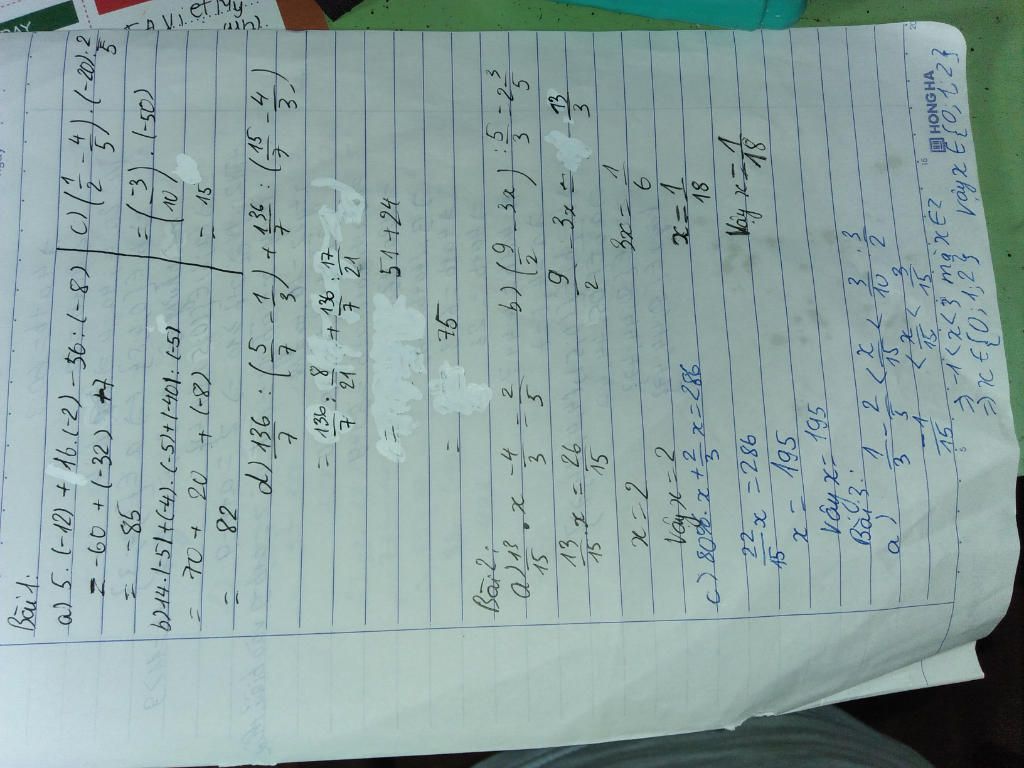 Bài 1:
a) 5. (-12) + 16.(-2) - 36 : (-8)
= -60 + (-32) + 7
= -85
b) 14.(-5) + (-4).(-5) + (-40).(-5)
= 70 + 20 + (-8)
= 82
c) (1/2 - 4/5) . (-20) : 2/5
= (-3/10) . (-50)
= 15
d) 136/7 : (5/7 - 1/3) + 136/7 : (15/7 - 4/3)
= 136/7 : 8/21 + 136/7 : 17/21
= 51 + 24
= 75
Bài 2:
a) 13/15 . x - 4/3 = 2/5
13/15 x = 26/15
x = 2
Vậy x = 2
b) (9/2 - 3x) : 5/3 = 2 3/5
9/2 - 3x = 13/3
3x = 1/6
x = 1/18
Vậy x = 1/18
c) 80% . x + 2/3 x = 286
22/15 x = 286
x = 195
Vậy x = 195
Bài 3:
a) 1/3 - 2/5 < x/15 < 3/10 : 3/2
-1/15 < x/15 < 3/15
⇒ -1 < x < 3 mà x ∈ Z
⇒ x ∈ {0; 1; 2} Vậy x ∈ {0; 1; 2}
HONG HA